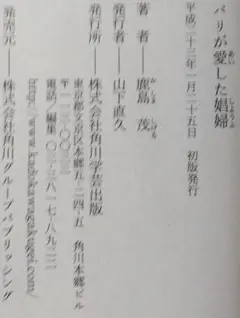 パリが愛した娼婦
平成二十三年一月二十五日 初版発行
著者――鹿島 茂
発行者――山下直久
発行所――株式会社角川学芸出版
東京都文京区本郷五-二四-五 角川本郷ビル
電話・編集 〇三-三八一七-八九二二
http://www.kadokawagakugei.com/
発売元――株式会社角川グループパブリッシング